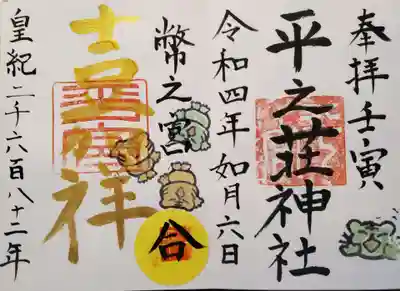 奉拝壬寅
平之荘神社
令和四年如月六日
幣之宮
合
吉祥
皇紀二千六百八十二年